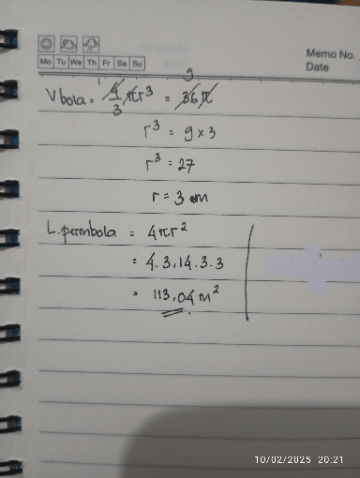 Memo No.
Mo Tu We Th Fr Sa Su
Date
1 9
V bola = 4/3 πr³ = 36π
r³ = 9 × 3
r³ = 27
r = 3 m
L. permbola = 4πr²
= 4.3,14.3.3
= 113,04 m²
10/02/2025 20:21